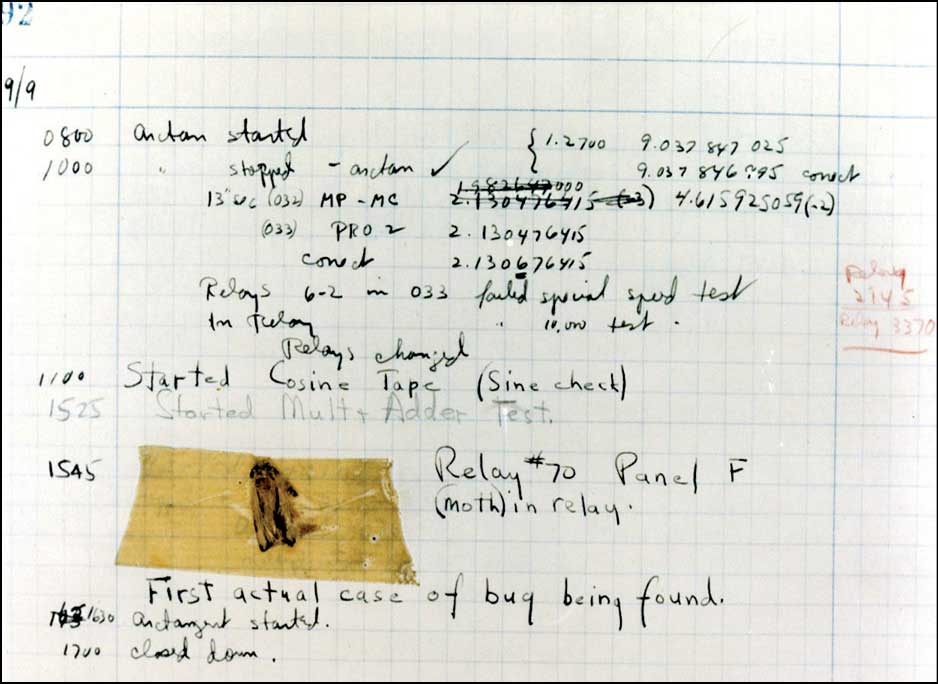 92
9/9
0800 Antan started
1000 " stopped - antan ✓ { 1.2700 9.037 847 025
9.037 846 795 conect
13"uc (032) MP - MC 1.982647000
2.130476415 (-3) 4.615925059(-2)
(033) PRO 2 2.130476415
conect 2.130676415
Relays 6-2 in 033 failed special speed test
In Relay " 10,000 test .
Relays changed
Relay
2145
Relay 3370
1100 Started Cosine Tape (Sine check)
1525 Started Mult + Adder Test.
1545 Relay #70 Panel F
(moth) in relay.
First actual case of bug being found.
1630 antangent started.
1700 closed down.